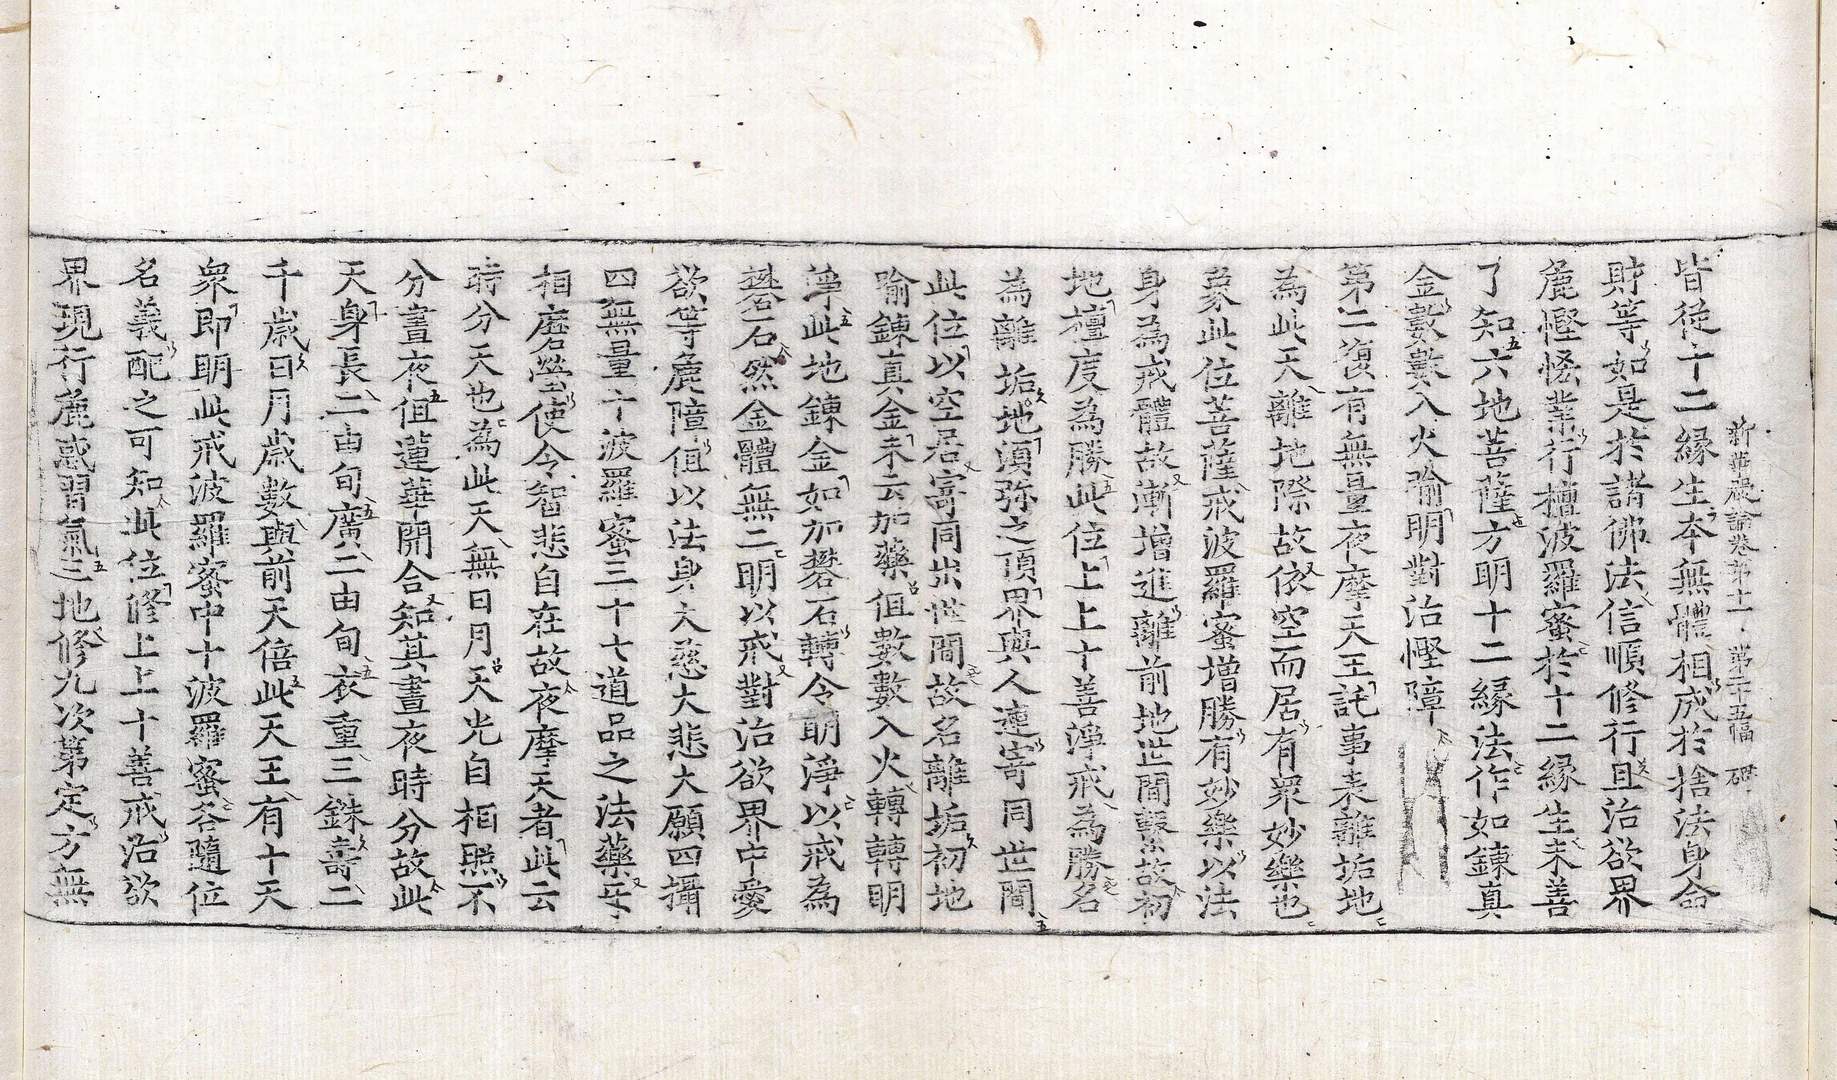 新華嚴論卷第十一 第二十五幅
皆從十二緣生本無體相成於捨法身命
財等如是於諸佛法信順修行且治欲界
麁慳悋業行檀波羅蜜於十二緣生未善
了知六地菩薩方明十二緣法作如鍊真
金數數入火喻明對治慳障
第二復有無量夜摩天王託事表離垢地
為此天離地際故依空而居有衆妙樂也
象此位菩薩戒波羅蜜增勝有妙樂以法
身為戒體故漸增進離前地世間繫故初
地檀度為勝此位上上十善淨戒為勝名
為離垢地須弥之頂界與人連寄同世間
此位以空居寄同出世間故名離垢初地
喻鍊真金未云加藥但數數入火轉轉明
淨此地鍊金如加礬石轉令明淨以戒為
礬石然金體無二明以戒對治欲界中愛
欲等麁障但以法身大慈大悲大願四攝
四無量十波羅蜜三十七道品之法藥互
相磨瑩使令智悲自在故夜摩天者此云
時分天也為此天無日月天光自相照不
分晝夜但蓮華開合知其晝夜時分故此
天身長二由旬廣二由旬衣重三銖壽二
千歲日月歲數與前天倍此天王有十天
衆即明此戒波羅蜜中十波羅蜜各隨位
名義配之可知此位修上上十善戒治欲
界現行麁惑習氣三地修九次第定方無